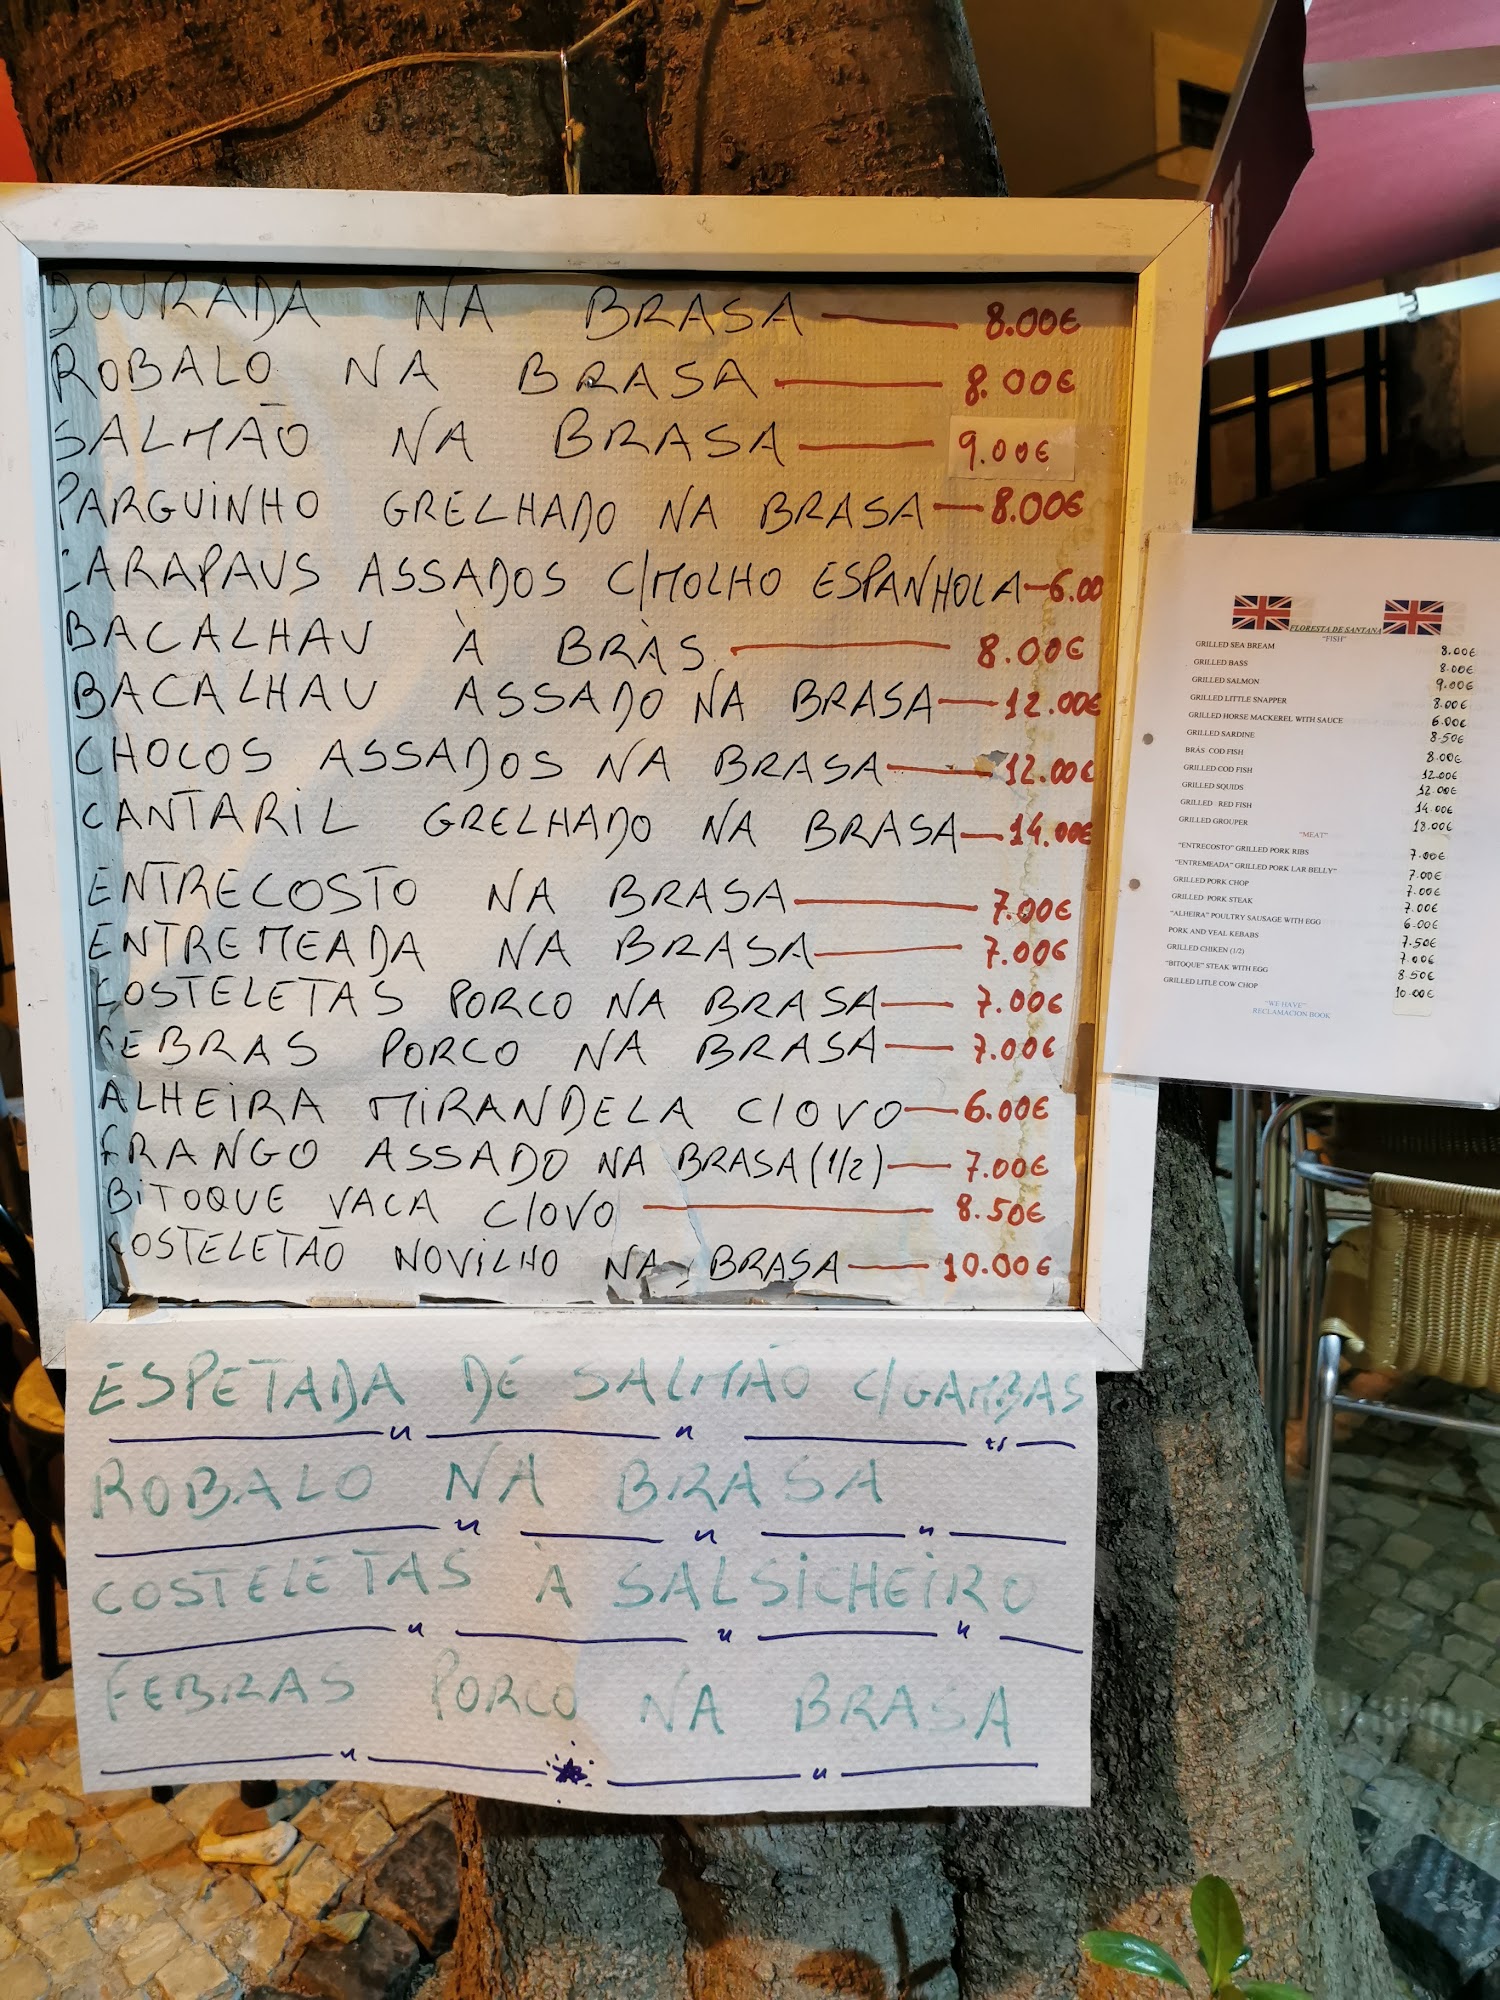 DOURADA NA BRASA 8.00€
ROBALO NA BRASA 8.00€
SALMÃO NA BRASA 9.00€
PARGUINHO GRELHADO NA BRASA 8.00€
CARAPAUS ASSADOS C/MOLHO ESPANHOLA 6.00
BACALHAU À BRÀS 8.00€
BACALHAU ASSADO NA BRASA 12.00€
CHOCOS ASSADOS NA BRASA 12.00€
CANTARIL GRELHADO NA BRASA 14.00€
ENTRECOSTO NA BRASA 7.00€
ENTREMEADA NA BRASA 7.00€
COSTELETAS PORCO NA BRASA 7.00€
FEBRAS PORCO NA BRASA 7.00€
ALHEIRA MIRANDELA C/OVO 6.00€
FRANGO ASSADO NA BRASA (1/2) 7.00€
BITOQUE VACA C/OVO 8.50€
COSTELETÃO NOVILHO NA BRASA 10.00€
ESPETADA DE SALMÃO C/GAMBAS
ROBALO NA BRASA
COSTELETAS À SALSICHEIRO
FEBRAS PORCO NA BRASA
FLORESTA DE SANTANA
"FISH"
GRILLED SEA BREAM 8.00€
GRILLED BASS 8.00€
GRILLED SALMON 9.00€
GRILLED LITTLE SNAPPER 8.00€
GRILLED HORSE MACKEREL WITH SAUCE 6.00€
GRILLED SARDINE 8.50€
BRÁS COD FISH 8.00€
GRILLED COD FISH 12.00€
GRILLED SQUIDS 12.00€
GRILLED RED FISH 14.00€
GRILLED GROUPER 18.00€
"MEAT"
"ENTRECOSTO" GRILLED PORK RIBS 7.00€
"ENTREMEADA" GRILLED PORK LAR BELLY" 7.00€
GRILLED PORK CHOP 7.00€
GRILLED PORK STEAK 7.00€
"ALHEIRA" POULTRY SAUSAGE WITH EGG 6.00€
PORK AND VEAL KEBABS 7.50€
GRILLED CHIKEN (1/2) 7.00€
"BITOQUE" STEAK WITH EGG 8.50€
GRILLED LITLE COW CHOP 10.00€
"WE HAVE"
RECLAMACION BOOK